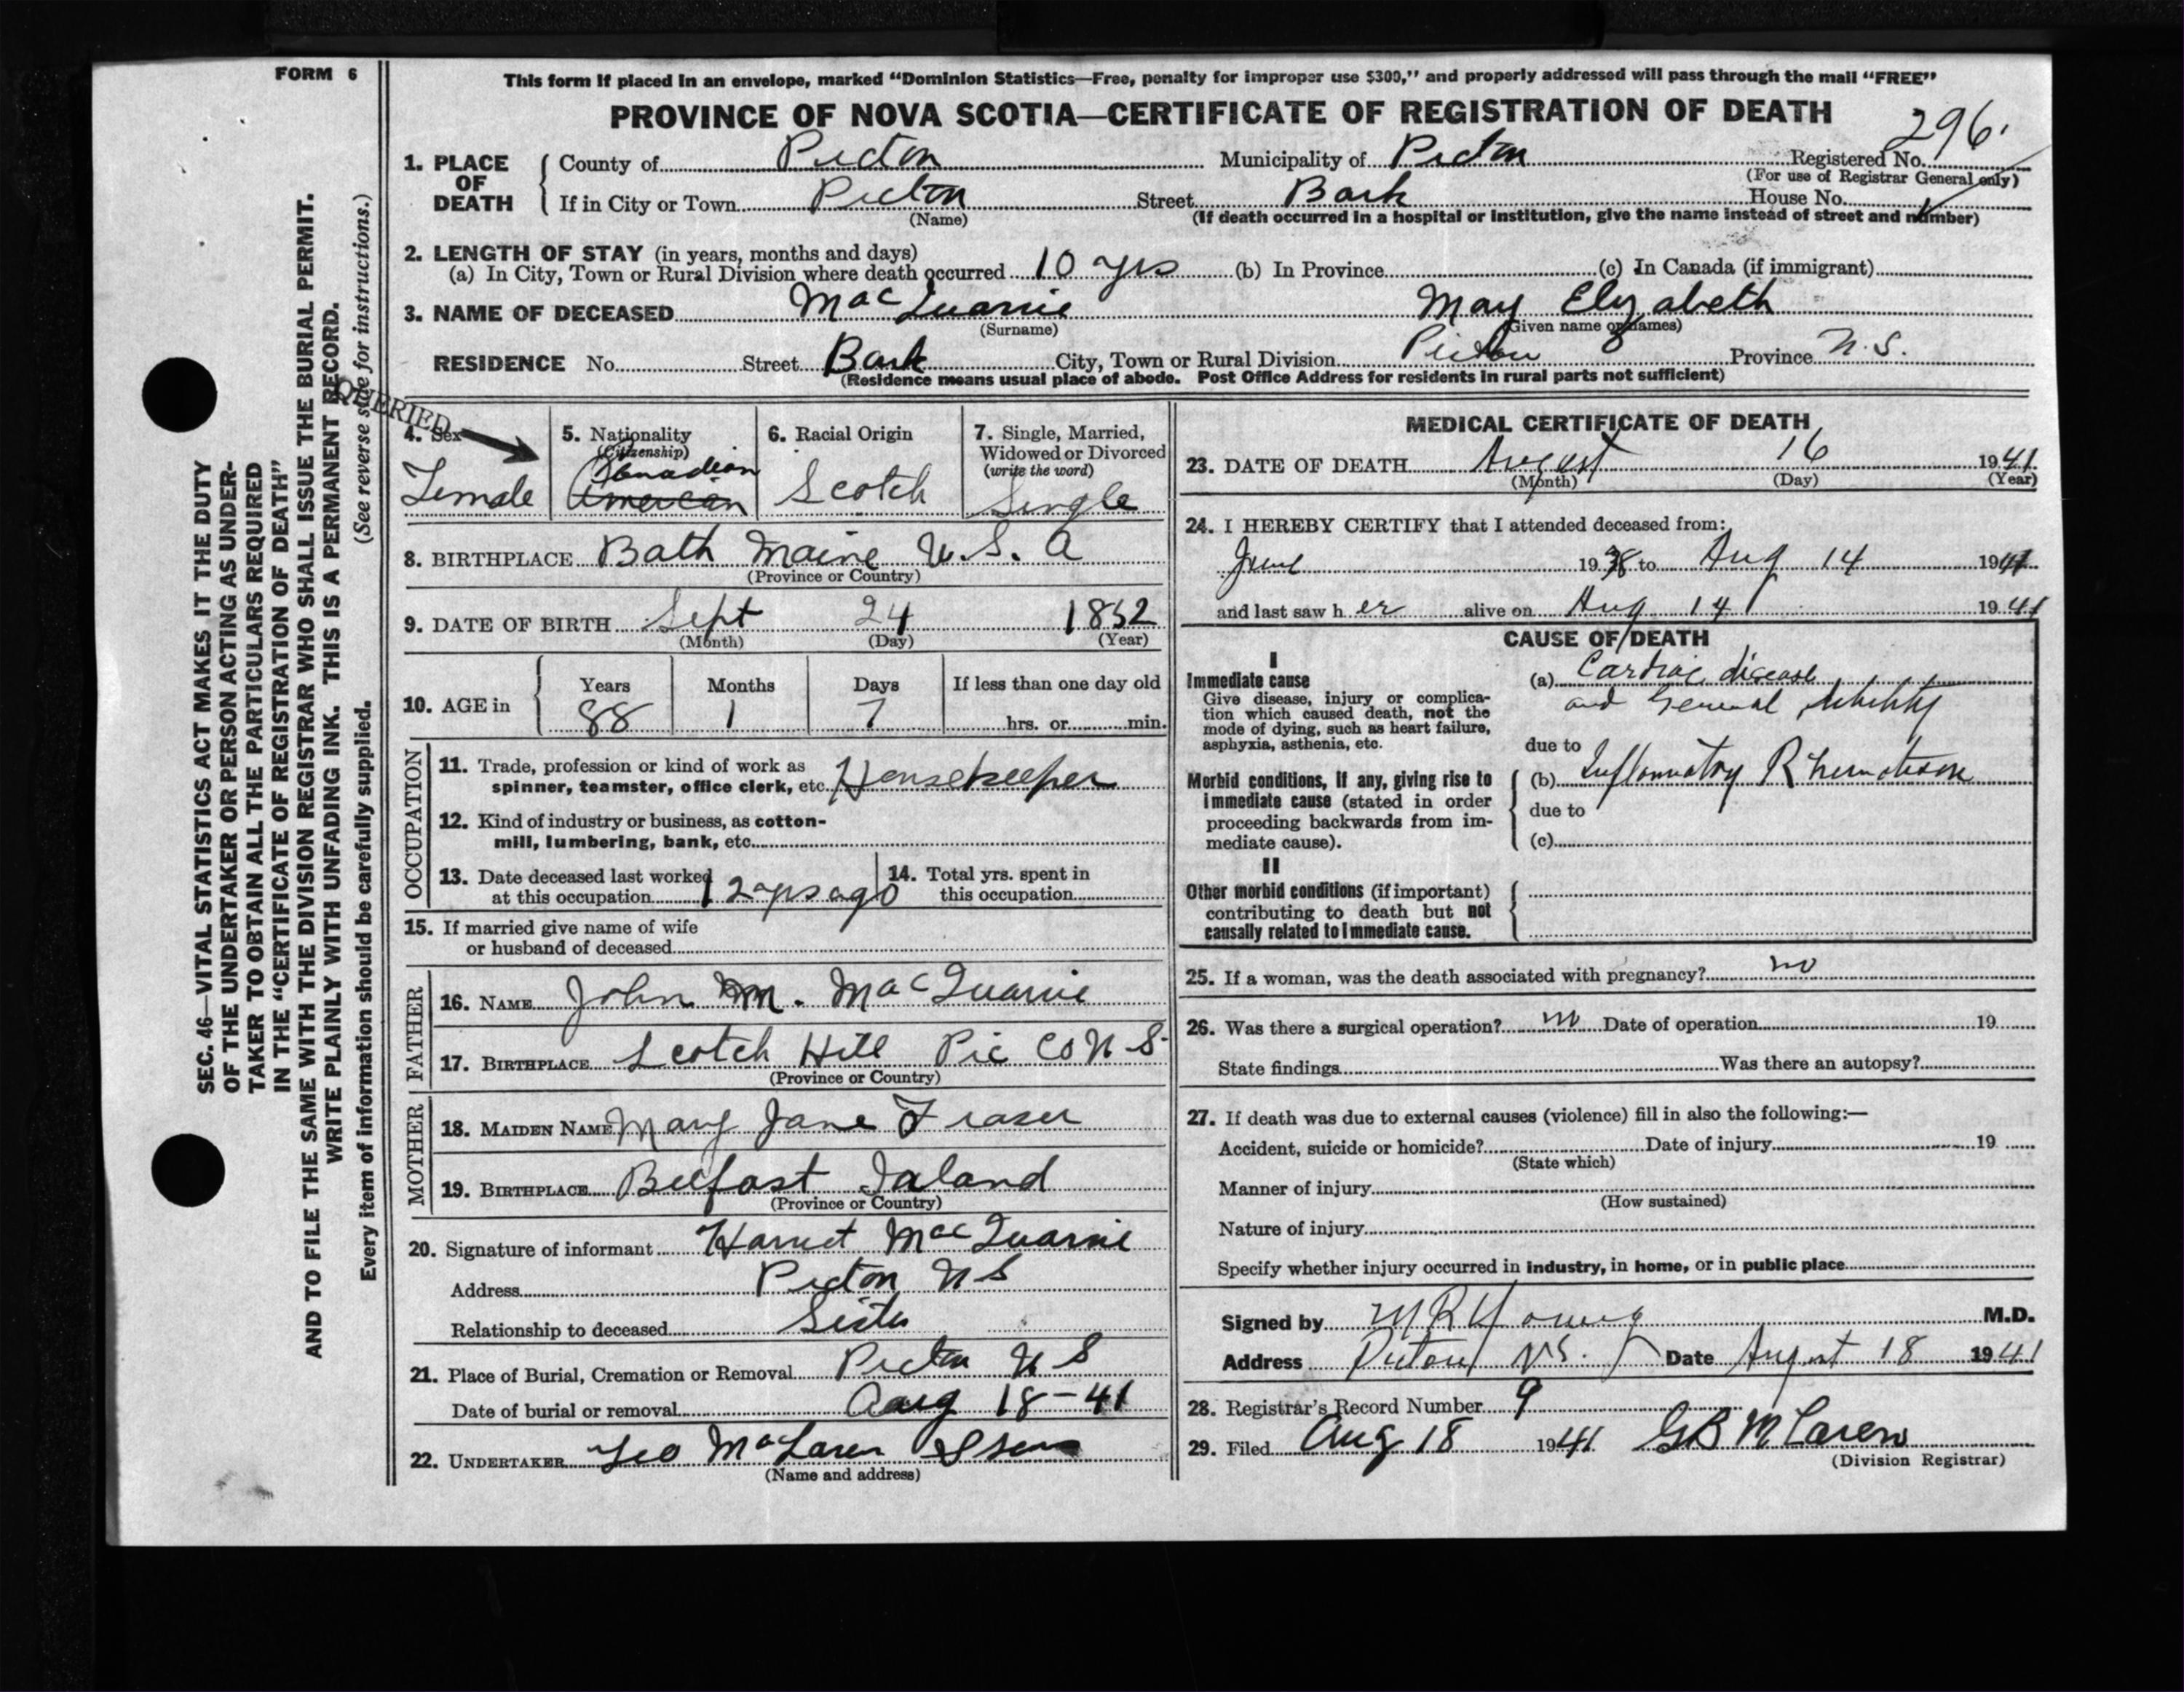 FORM 6
This form if placed in an envelope, marked "Dominion Statistics—Free, penalty for improper use $300," and properly addressed will pass through the mail "FREE"
PROVINCE OF NOVA SCOTIA—CERTIFICATE OF REGISTRATION OF DEATH
296
1. PLACE OF DEATH County of Pictou Municipality of Pictou Registered No.
(For use of Registrar General only)
If in City or Town Pictou Street House No.
(Name) (If death occurred in a hospital or institution, give the name instead of street and number)
2. LENGTH OF STAY (in years, months and days)
(a) In City, Town or Rural Division where death occurred 10 yrs (b) In Province (c) In Canada (if immigrant)
3. NAME OF DECEASED MacQuarrie May Elizabeth
(Surname) (Given name or names)
RESIDENCE No. Street City, Town or Rural Division Pictou Province N.S.
(Residence means usual place of abode. Post Office Address for residents in rural parts not sufficient)
QUERIED
4. Sex Female
5. Nationality (Citizenship) Canadian American
6. Racial Origin Scotch
7. Single, Married, Widowed or Divorced (write the word) Single
8. BIRTHPLACE Bath Maine U.S.A
(Province or Country)
9. DATE OF BIRTH Sept 24 1852
(Month) (Day) (Year)
10. AGE in Years Months Days If less than one day old
88 1 7 hrs. or min.
OCCUPATION
11. Trade, profession or kind of work as
spinner, teamster, office clerk, etc. Housekeeper
12. Kind of industry or business, as cotton-
mill, lumbering, bank, etc.
13. Date deceased last worked
at this occupation 12 yrs ago
14. Total yrs. spent in
this occupation
15. If married give name of wife
or husband of deceased
FATHER
16. NAME John M. MacQuarrie
17. BIRTHPLACE Scotch Hill Pic Co N S
(Province or Country)
MOTHER
18. MAIDEN NAME Mary Jane Fraser
19. BIRTHPLACE Belfast Ialand
(Province or Country)
20. Signature of informant Harriet MacQuarrie
Address Pictou N S
Relationship to deceased Sister
21. Place of Burial, Cremation or Removal Pictou N S
Date of burial or removal Aug 18-41
22. UNDERTAKER Geo McLaren & Sons
(Name and address)
MEDICAL CERTIFICATE OF DEATH
23. DATE OF DEATH August 16 1941
(Month) (Day) (Year)
24. I HEREBY CERTIFY that I attended deceased from:
June 1938 to Aug 14 1941
and last saw her alive on Aug 14 1941
CAUSE OF DEATH
I
Immediate cause
Give disease, injury or complica-
tion which caused death, not the
mode of dying, such as heart failure,
asphyxia, asthenia, etc.
(a) Cardiac disease
and General debility
due to
Morbid conditions, if any, giving rise to
immediate cause (stated in order
proceeding backwards from im-
mediate cause).
(b) Inflammatory Rheumatism
due to
(c)
II
Other morbid conditions (if important)
contributing to death but not
causally related to immediate cause.
25. If a woman, was the death associated with pregnancy? no
26. Was there a surgical operation? no Date of operation 19
State findings Was there an autopsy?
27. If death was due to external causes (violence) fill in also the following:—
Accident, suicide or homicide? Date of injury 19
(State which)
Manner of injury
(How sustained)
Nature of injury
Specify whether injury occurred in industry, in home, or in public place
Signed by M R Young M.D.
Address Pictou N.S. Date August 18 1941
28. Registrar's Record Number 9
29. Filed Aug 18 1941 G B McLaren
(Division Registrar)
SEC. 46—VITAL STATISTICS ACT MAKES IT THE DUTY
OF THE UNDERTAKER OR PERSON ACTING AS UNDER-
TAKER TO OBTAIN ALL THE PARTICULARS REQUIRED
IN THE "CERTIFICATE OF REGISTRATION OF DEATH"
AND TO FILE THE SAME WITH THE DIVISION REGISTRAR WHO SHALL ISSUE THE BURIAL PERMIT.
WRITE PLAINLY WITH UNFADING INK. THIS IS A PERMANENT RECORD.
Every item of information should be carefully supplied. (See reverse side for instructions.)